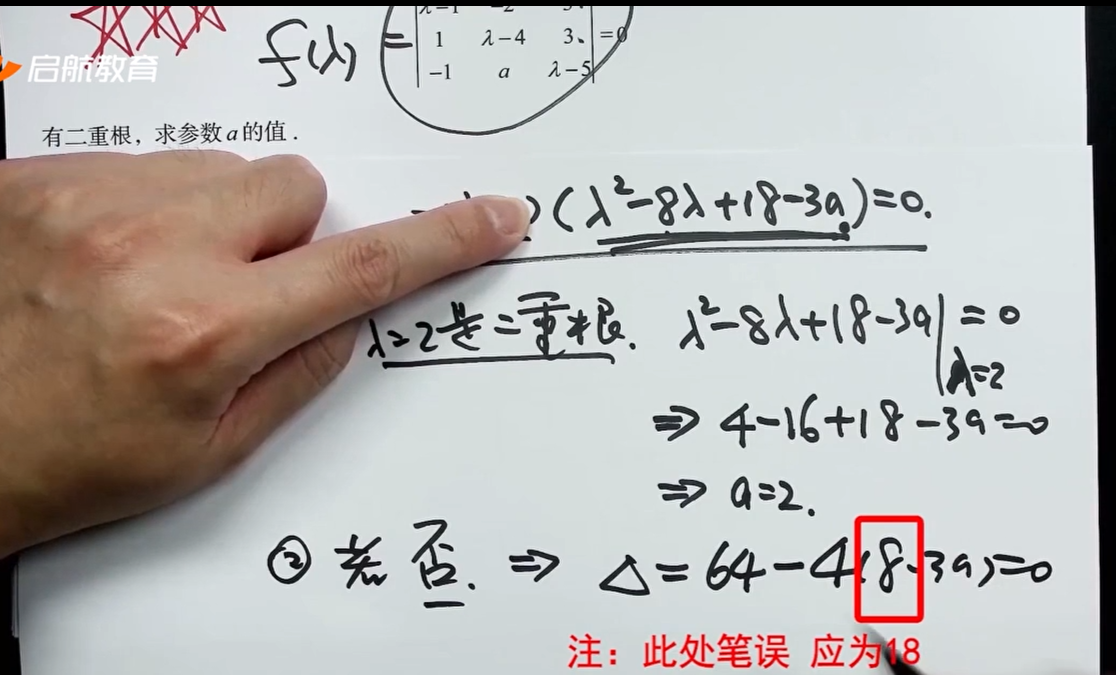 f(λ) =
1 λ-4 3、 =0
-1 a λ-5
启航教育
有二重根，求参数a的值．
(λ²-8λ+18-3a)=0.
λ=2是二重根. λ²-8λ+18-3a|λ=2 =0
⇒ 4-16+18-3a=0
⇒ a=2.
② 若否. ⇒ Δ=64-4(8-3a)=0
注：此处笔误 应为18